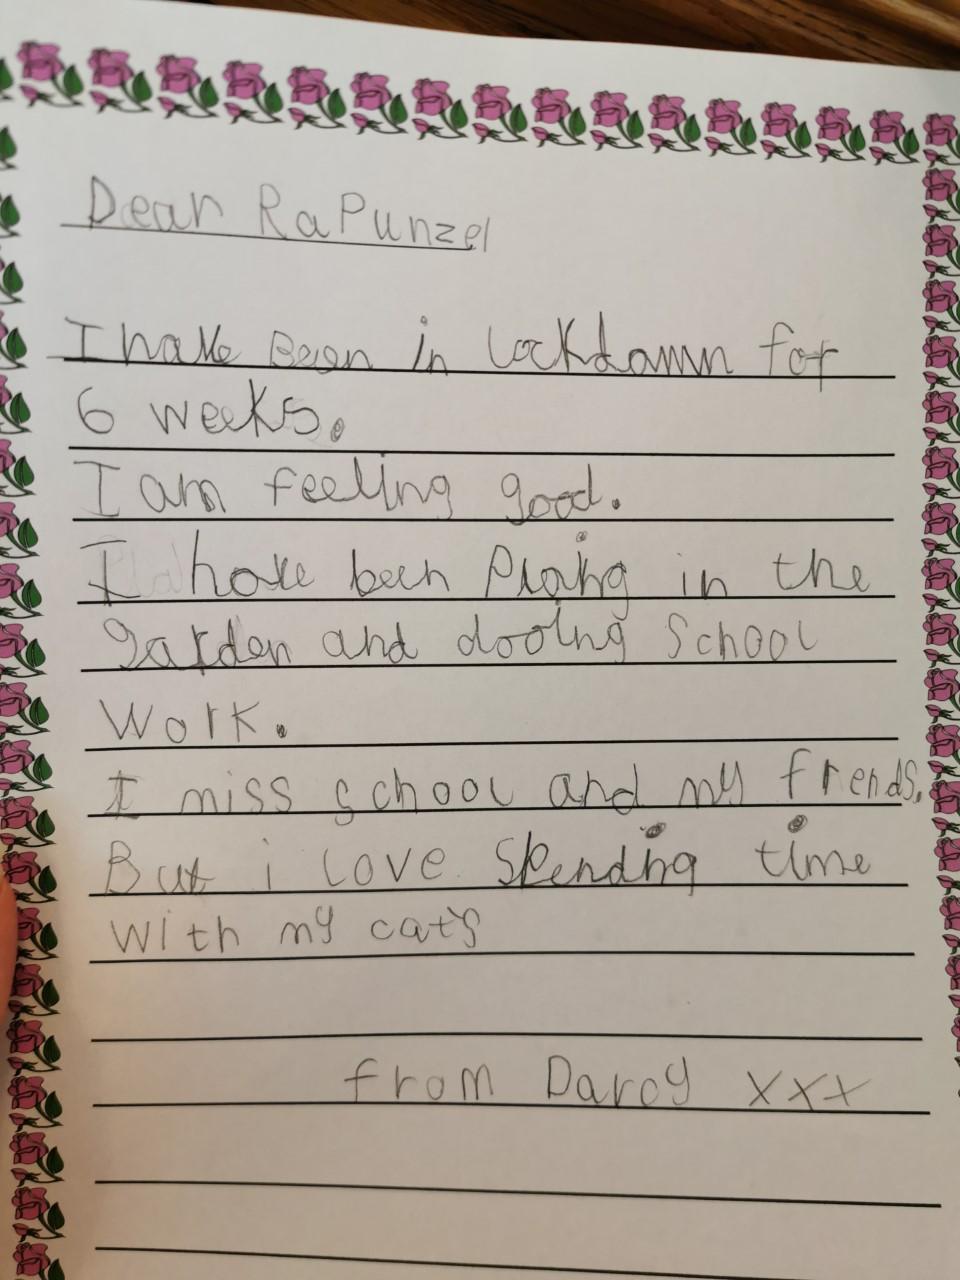 Dear RaPunzel
I have Been in lockdown for
6 weeks.
I am feeling good.
I have been Plaing in the
garden and dooing School
Work.
I miss school and my frends.
But i love Spending time
With my cats
from Darcy xxx